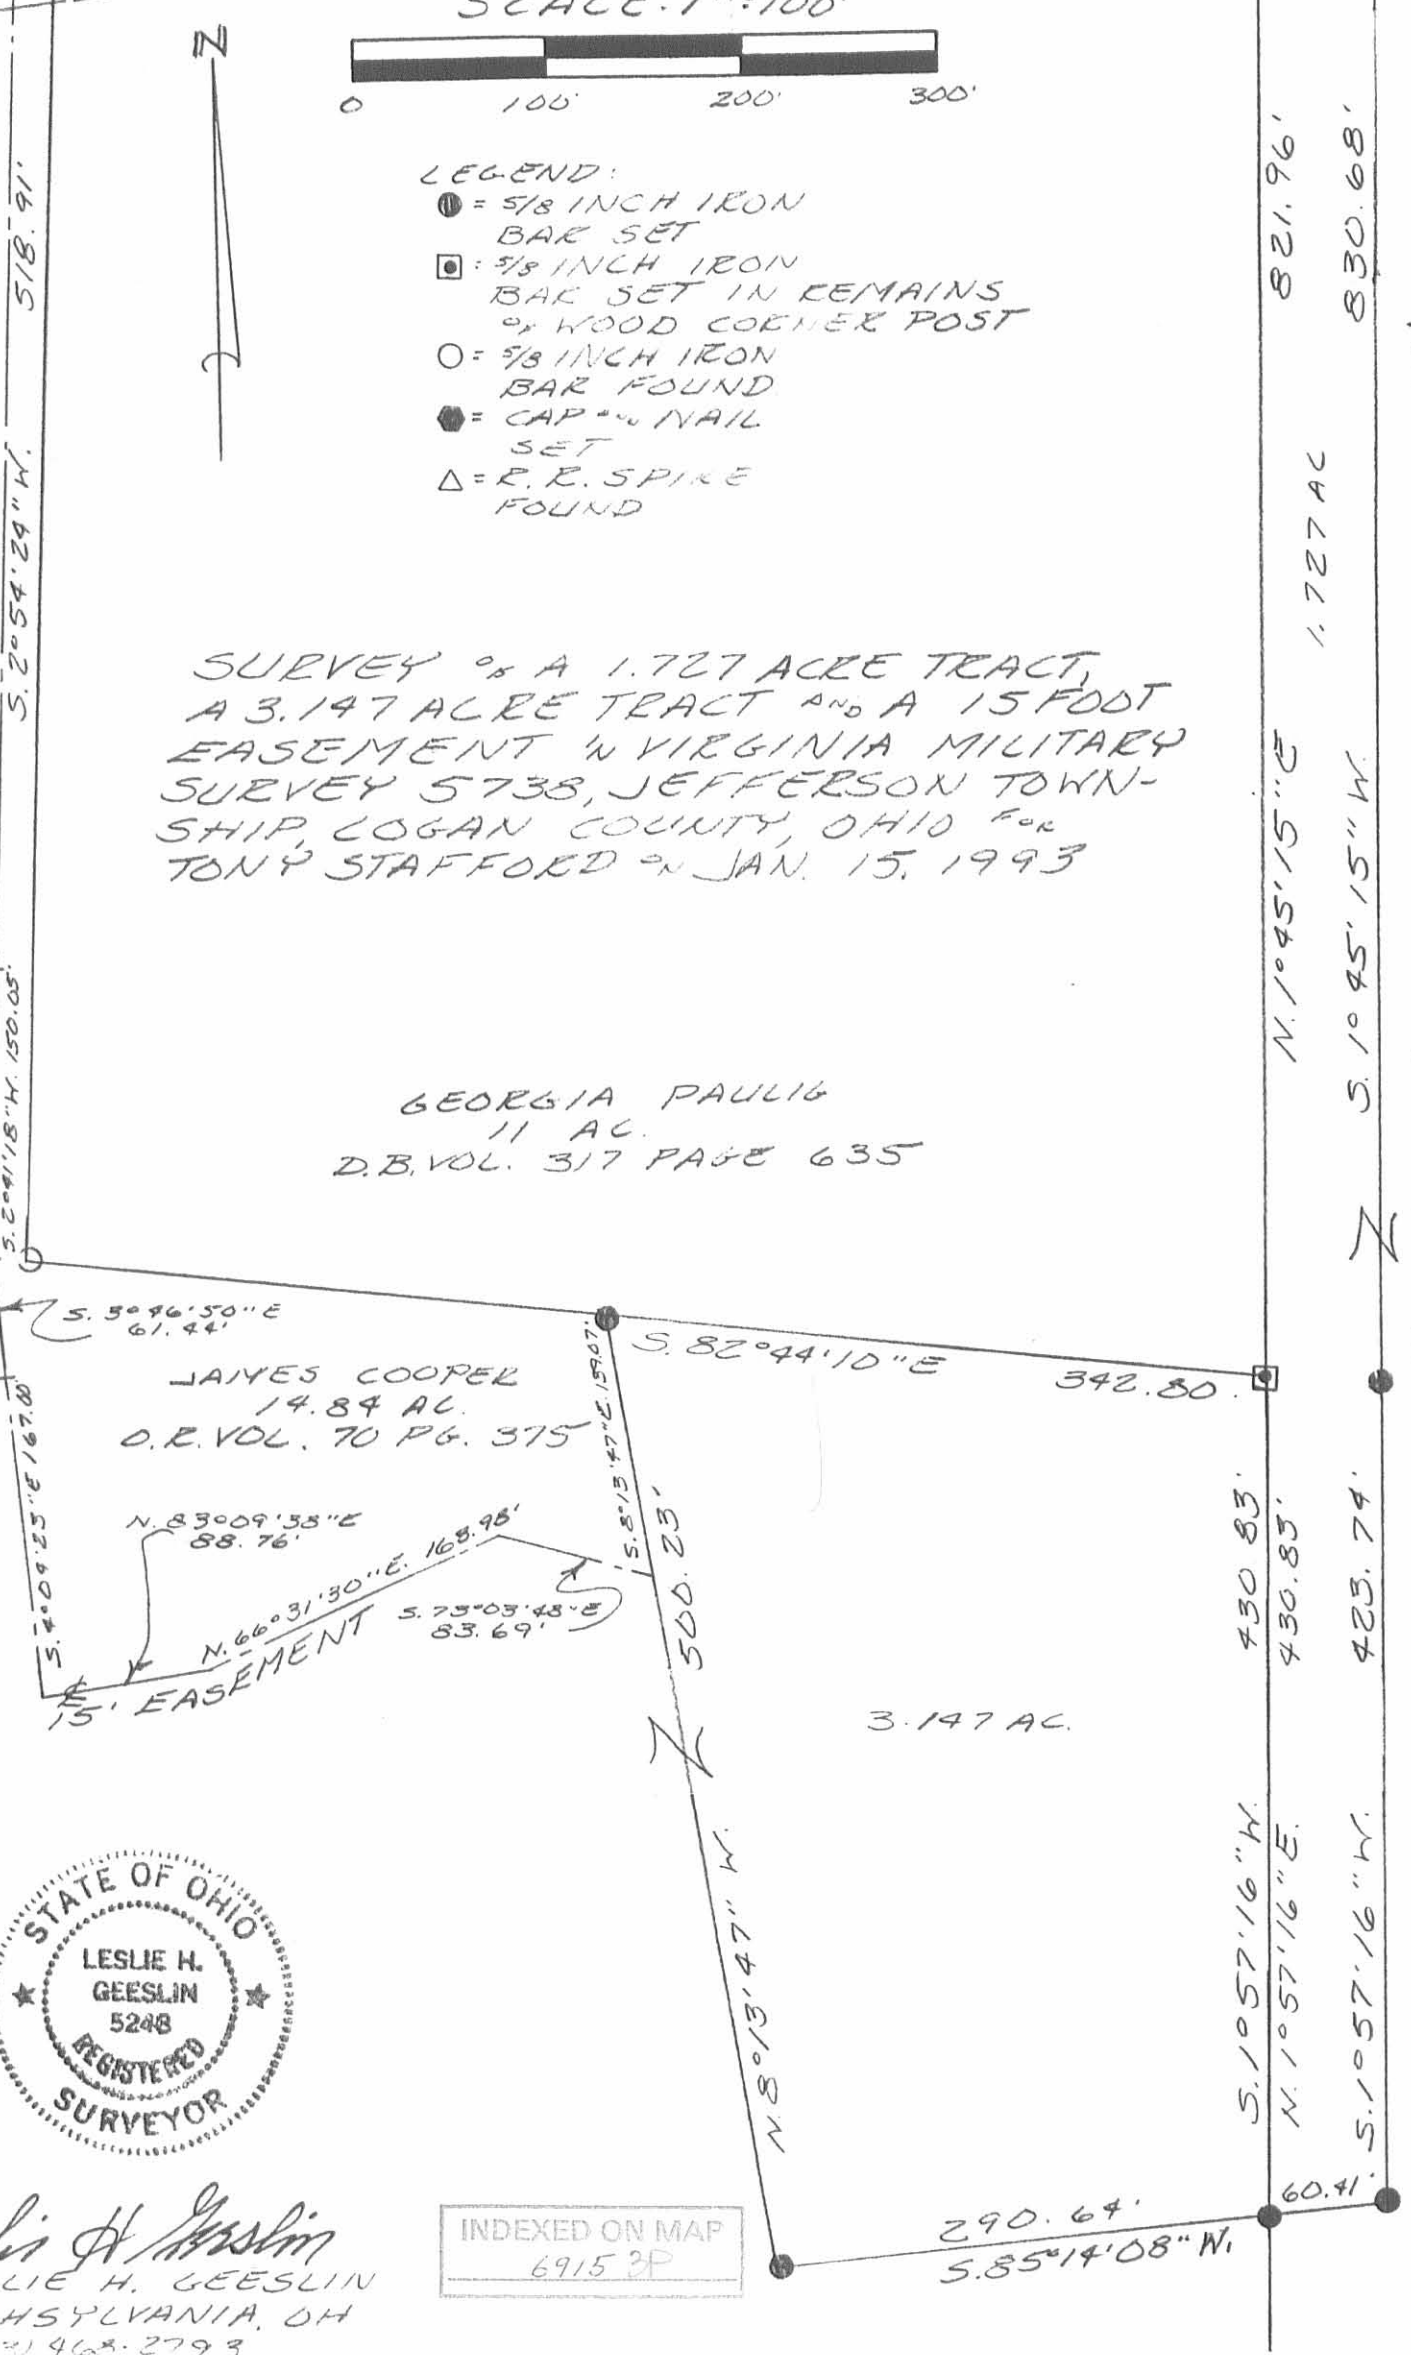 SCALE: 1":100'
N
0 100' 200' 300'
LEGEND:
= 5/8 INCH IRON
BAR SET
: 5/8 INCH IRON
BAR SET IN REMAINS
OF WOOD CORNER POST
= 5/8 INCH IRON
BAR FOUND
= CAP AND NAIL
SET
= R.R. SPIKE
FOUND
S. 2°54'24" W. 518.91'
821.96'
830.68'
1.727 AC
N. 1°45'15" E
S. 1°45'15" W.
SURVEY OF A 1.727 ACRE TRACT,
A 3.147 ACRE TRACT AND A 15 FOOT
EASEMENT IN VIRGINIA MILITARY
SURVEY 5738, JEFFERSON TOWN-
SHIP, LOGAN COUNTY, OHIO FOR
TONY STAFFORD ON JAN. 15, 1993
S. 2°41'18" W. 150.05'
GEORGIA PAULIG
11 AC.
D.B. VOL. 317 PAGE 635
S. 3°46'50" E
61.44'
JAMES COOPER
14.84 AC.
O.R. VOL. 70 PG. 375
S. 82°44'10" E 342.80'
S. 8°13'47" E. 159.07'
S. 4°04'25" E 167.00'
N. 83°09'38" E
88.76'
N. 66°31'30" E. 168.98'
S. 73°03'48" E
83.69'
15' EASEMENT
500.23'
N. 8°13'47" W.
3.147 AC.
430.83'
430.83'
423.74'
S. 1°57'16" W.
N. 1°57'16" E.
S. 1°57'16" W.
60.41'
290.64'
S. 85°14'08" W.
STATE OF OHIO
LESLIE H.
GEESLIN
5248
REGISTERED
SURVEYOR
lis H Geeslin
LIE H. GEESLIN
HSYLVANIA, OH
468-2793
INDEXED ON MAP
6915 3P